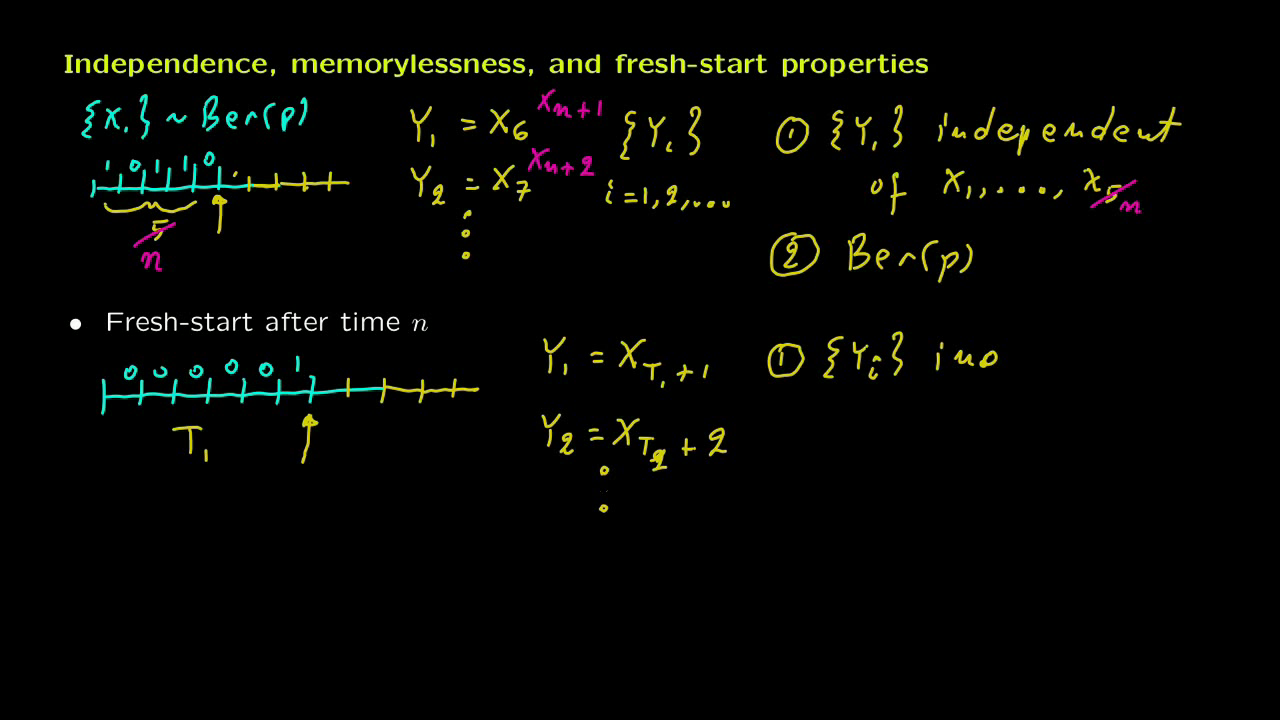 Independence, memorylessness, and fresh-start properties
{Xᵢ} ~ Ber(p)
1 0 1 1 0
5 n
Y₁ = X₆ Xₙ₊₁
Y₂ = X₇ Xₙ₊₂
{Yᵢ}
i = 1, 2, ...
① {Yᵢ} independent
of X₁, ..., X₅ n
② Ber(p)
• Fresh-start after time n
0 0 0 0 0 1
T₁
Y₁ = X_{T₁+1}
Y₂ = X_{T₂+2}
① {Yᵢ} ind